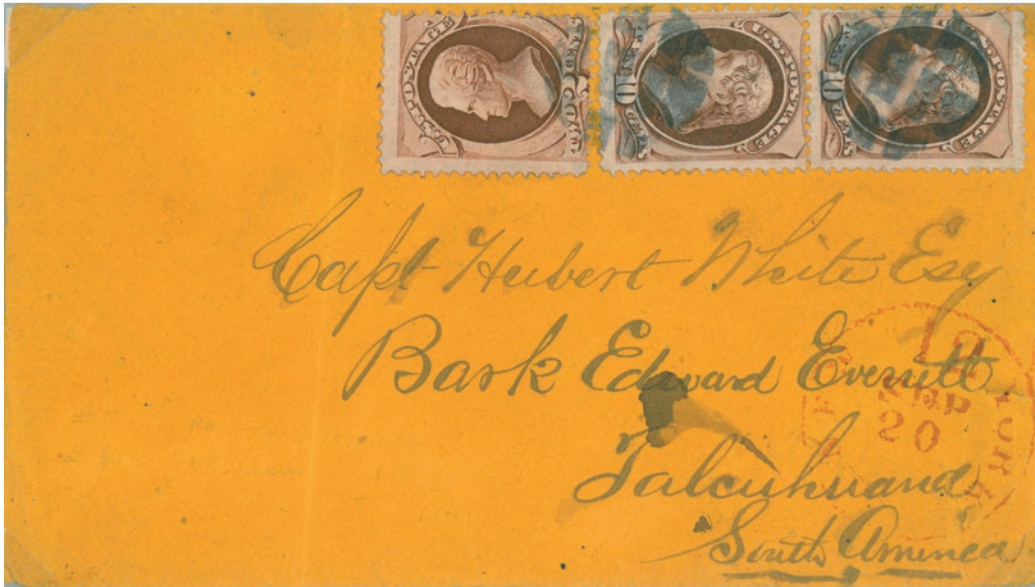 U.S. POSTAGE
TWO CENTS
U.S. POSTAGE
10
CENTS
U.S. POSTAGE
10
CENTS
Capt Hubert White Esq
Bark Edward Everett
Talcuhuano
South America
NEW YORK
SEP
20